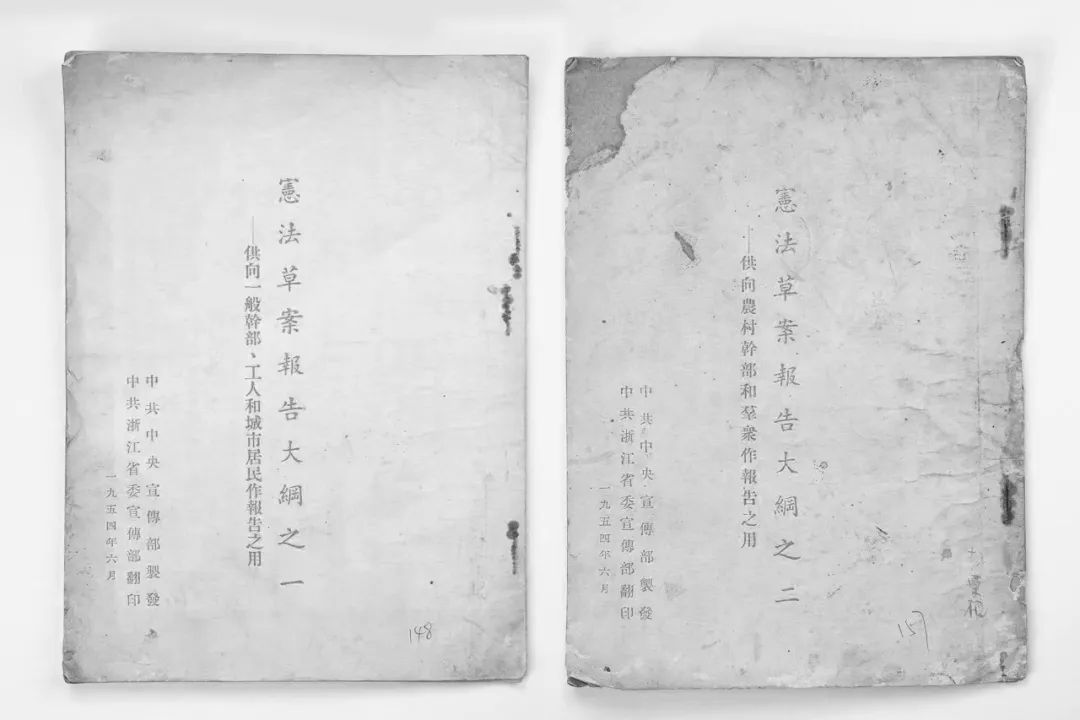 憲法草案報告大綱之一
——供向一般幹部、工人和城市居民作報告之用
中共中央宣傳部製發
中共浙江省委宣傳部翻印
一九五四年六月
148
憲法草案報告大綱之二
——供向農村幹部和羣衆作報告之用
中共中央宣傳部製發
中共浙江省委宣傳部翻印
一九五四年六月
157